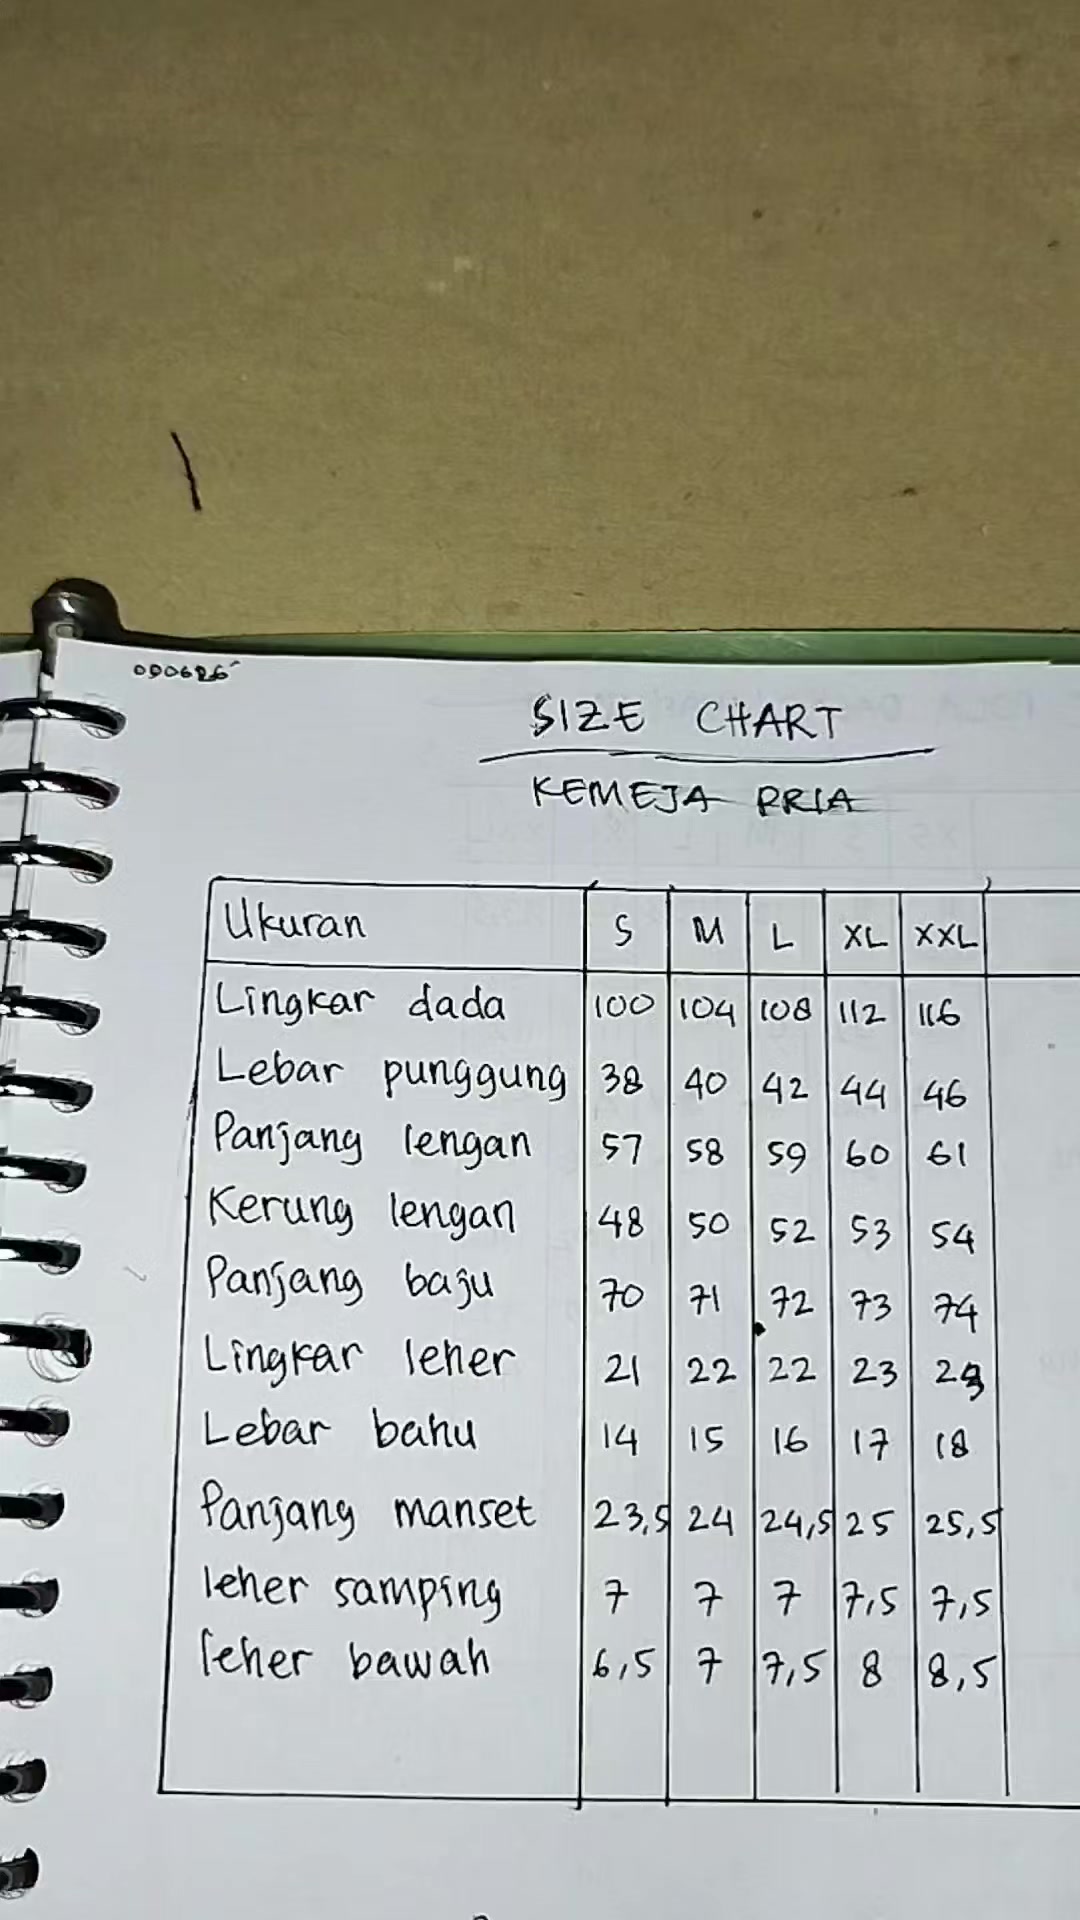 SIZE CHART
KEMEJA PRIA
Ukuran S M L XL XXL
Lingkar dada 100 104 108 112 116
Lebar punggung 38 40 42 44 46
Panjang lengan 57 58 59 60 61
Kerung lengan 48 50 52 53 54
Panjang baju 70 71 72 73 74
Lingkar leher 21 22 22 23 23
Lebar bahu 14 15 16 17 18
Panjang manset 23,5 24 24,5 25 25,5
leher samping 7 7 7 7,5 7,5
leher bawah 6,5 7 7,5 8 8,5